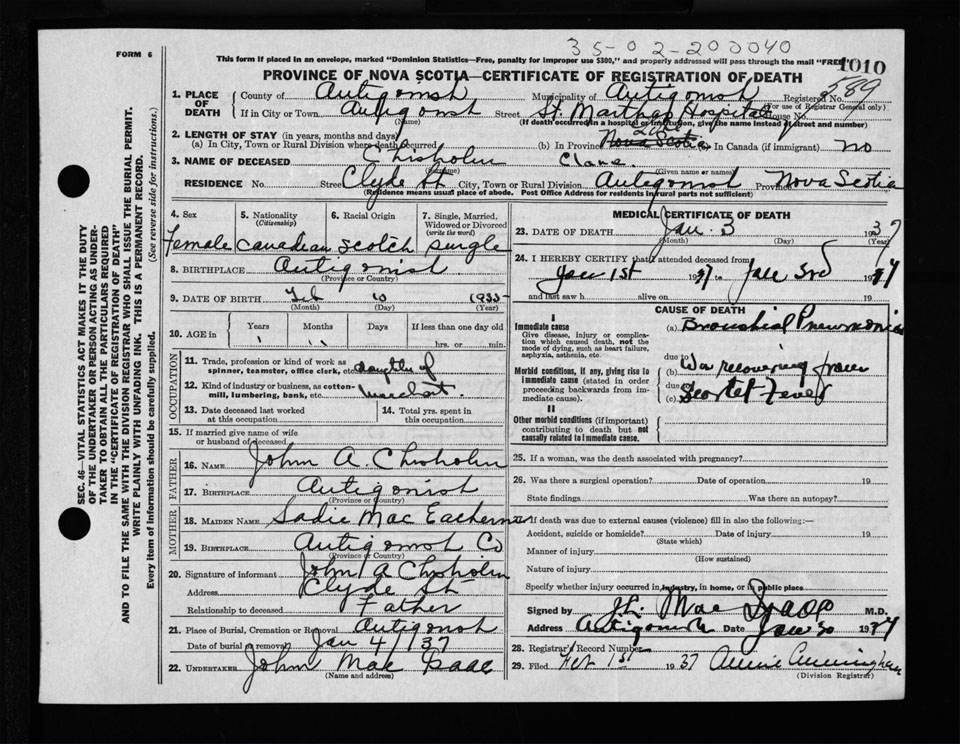 35-02-200040
FORM 6
This form if placed in an envelope, marked "Dominion Statistics—Free, penalty for improper use $300," and properly addressed will pass through the mail "FREE"
1010
PROVINCE OF NOVA SCOTIA—CERTIFICATE OF REGISTRATION OF DEATH
1. PLACE OF DEATH County of Antigonish Municipality of Antigonish Registered No. 589
(For use of Registrar General only)
If in City or Town Antigonish Street St. Marthas Hospital House No.
(Name) (If death occurred in a hospital or institution, give the name instead of street and number)
2. LENGTH OF STAY (in years, months and days)
(a) In City, Town or Rural Division where death occurred (b) In Province Nova Scotia In Canada (if immigrant) no
3. NAME OF DECEASED Chisholm Clare.
(Surname) (Given name or names)
RESIDENCE No. Street Clyde St City, Town or Rural Division Antigonish Province Nova Scotia
(Residence means usual place of abode. Post Office Address for residents in rural parts not sufficient)
4. Sex 5. Nationality (Citizenship) 6. Racial Origin 7. Single, Married, Widowed or Divorced (write the word)
Female Canadian Scotch single
8. BIRTHPLACE Antigonish
(Province or Country)
9. DATE OF BIRTH Feb 10
(Month) (Day) (Year)
10. AGE in Years Months Days If less than one day old
hrs. or min.
OCCUPATION
11. Trade, profession or kind of work as spinner, teamster, office clerk, etc. daughter of
12. Kind of industry or business, as cotton-mill, lumbering, bank, etc.
13. Date deceased last worked at this occupation 14. Total yrs. spent in this occupation
15. If married give name of wife or husband of deceased
FATHER
16. NAME John A. Chisholm
17. BIRTHPLACE Antigonish
(Province or Country)
MOTHER
18. MAIDEN NAME Sadie Mac Eachern
19. BIRTHPLACE Antigonish Co
(Province or Country)
20. Signature of informant John A Chisholm
Address Clyde St
Relationship to deceased Father
21. Place of Burial, Cremation or Removal Antigonish
Date of burial or removal Jan 4/37
22. UNDERTAKER John Mac Isaac
(Name and address)
MEDICAL CERTIFICATE OF DEATH
23. DATE OF DEATH Jan. 3 1937
(Month) (Day) (Year)
24. I HEREBY CERTIFY that I attended deceased from
Jan 1st 1937 to Jan 3rd 1937
and last saw h alive on 19
CAUSE OF DEATH
I
Immediate cause
Give disease, injury or complication which caused death, not the mode of dying, such as heart failure, asphyxia, asthenia, etc.
(a) Bronchial Pneumonia
due to
Morbid conditions, if any, giving rise to immediate cause (stated in order proceeding backwards from immediate cause).
(b) Was recovering from
due to
(c) Scarlet Fever
II
Other morbid conditions (if important) contributing to death but not causally related to immediate cause.
25. If a woman, was the death associated with pregnancy?
26. Was there a surgical operation? Date of operation 19
State findings Was there an autopsy?
27. If death was due to external causes (violence) fill in also the following:—
Accident, suicide or homicide? Date of injury 19
(State which)
Manner of injury
(How sustained)
Nature of injury
Specify whether injury occurred in industry, in home, or in public place
Signed by M.D.
Address Antigonish Date Jan 30 1937
28. Registrar's Record Number
29. Filed Feb 1st 1937 Annie Cunningham
(Division Registrar)
SEC. 46—VITAL STATISTICS ACT MAKES IT THE DUTY
OF THE UNDERTAKER OR PERSON ACTING AS UNDER-
TAKER TO OBTAIN ALL THE PARTICULARS REQUIRED
IN THE "CERTIFICATE OF REGISTRATION OF DEATH"
AND TO FILE THE SAME WITH THE DIVISION REGISTRAR WHO SHALL ISSUE THE BURIAL PERMIT.
WRITE PLAINLY WITH UNFADING INK. THIS IS A PERMANENT RECORD.
Every item of information should be carefully supplied. (See reverse side for instructions.)